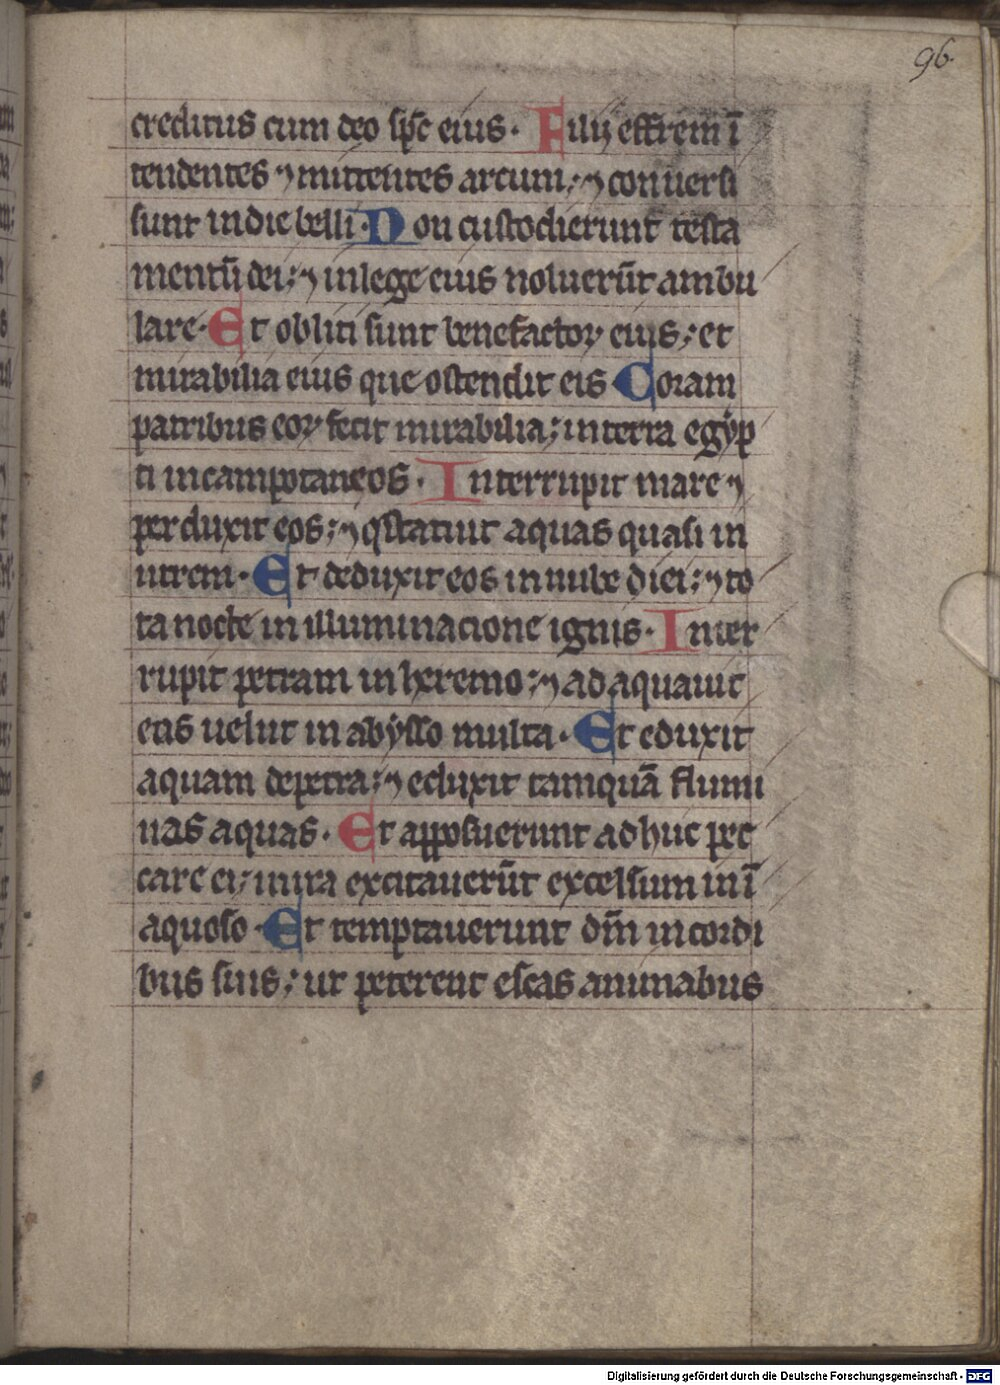 96.
creditus cum deo sp̄c eius. Filij effrem ī
tendentes ⁊ mittentes arcum; ⁊ conuersi
sunt in die belli. Non custodierunt testa
mentū dei; ⁊ in lege eius noluerūt ambu
lare. Et obliti sunt benefactoꝝ eius; et
mirabilia eius que ostendit eis Coram
patribus eoꝝ fecit mirabilia; in terra egẏp
ti in campo taneos. Interrupit mare ⁊
perduxit eos; ⁊ ꝯstatuit aquas quasi in
utrem. Et deduxit eos in nube diei; ⁊ to
ta nocte in illuminacione ignis. Inter
rupit petram in heremo; ⁊ adaquauit
eos uelut in abẏsso multa. Et eduxit
aquam de petra; ⁊ eduxit tamquā flumi
nas aquas. Et apposuerunt adhuc pec
care ei; in ira excitauerūt excelsum in ī
aquoso. Et temptauerunt dm̄ in cordi
bus suis; ut peterent escas animabus
Digitalisierung gefördert durch die Deutsche Forschungsgemeinschaft - DFG